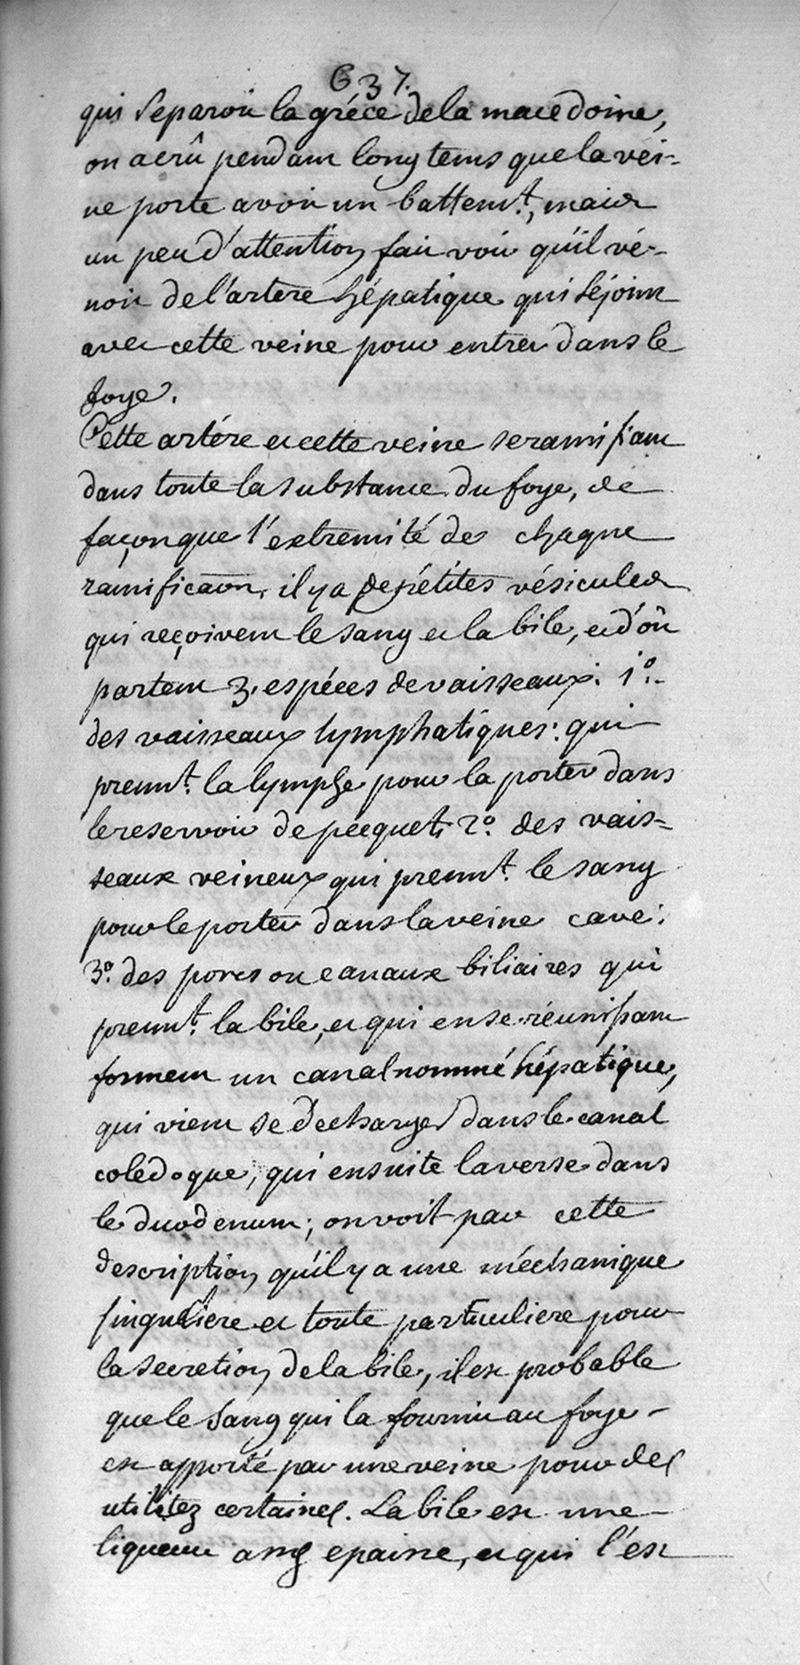 637.
qui separoit la gréce de la macedoine,
on a crû pendant longtems que la vei-
ne porte avoit un battemt., mais
un peu d'attention fait voir qu'il vé-
noit de l'artere hépatique qui séjoint
avec cette veine pour entrer dans le
foye.
Cette artére et cette veine se ramifiant
dans toute la substance du foye, de
façon que l'extremité de chaque
ramificaon, il y a de pétites vésicules
qui reçoivent le sang et la bile, et d'où
partent 3. espéces de vaisseaux. 1°.
des vaisseaux lymphatiques: qui
prennt. la lymphe pour la porter dans
le reservoir de pecquet, 2°. des vais-
seaux veineux qui prennt. le sang
pour le porter dans la veine cave:
3°. des pores ou canaux biliaires qui
prennt. la bile, et qui en se réunissant
forment un canal nommé hépatique,
qui vient se décharger dans le canal
colédoque, qui ensuite la verse dans
le duodenum; on voit par cette
description qu'il y a une méchanique
singuliere et toute particuliere pour
la secretion de la bile, il est probable
que le sang qui la fournit au foye
est apporté par une veine pour des
utilitez certaines. La bile est une
liqueur assés epaisse, et qui l'est